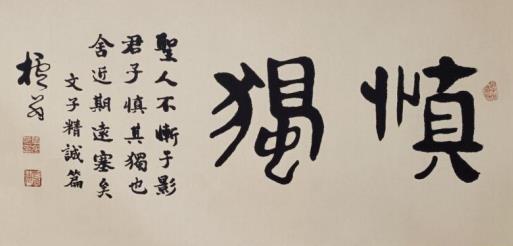 慎獨
聖人不慚于影
君子慎其獨也
舍近期遠塞矣
文子精誠篇
翁